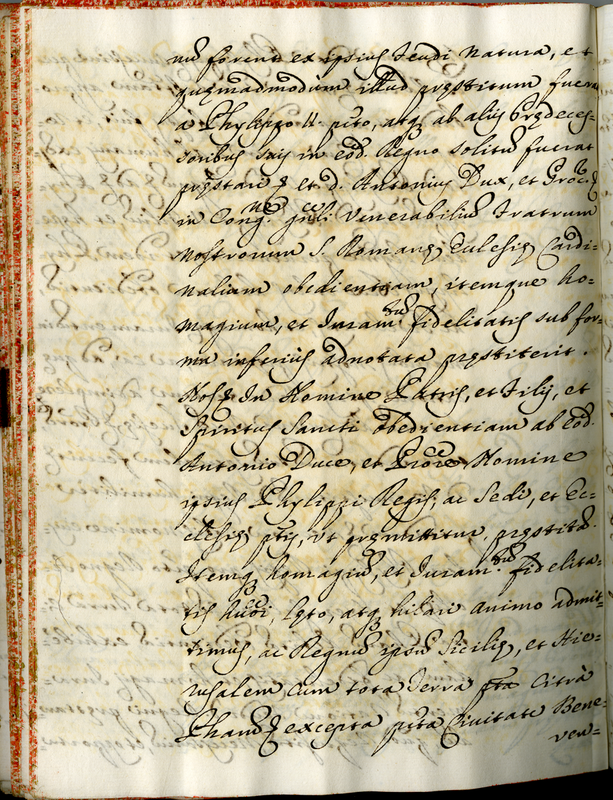 nũ forent ex ipsius feudi natura, et
quęmadmodum illud pręstitum fuera
a Phylippo 4. pñto, atq; ab alijs Prędeces=
soribus suis in eod. Regno solitũ fuerat
pręstari et d. Antonius Dux, et Proc.
in Cong.ne Venerabiliũ fratrum
Nostrorum S. Romanę Eclesię Cardi=
nalium obedientiam, itemque ho=
magium, et Juram.tum fidelitatis sub for=
ma inferius adnotata pręstiterit.
Nos In Nomine Patris, et Filij, et
Spiritus Sancti obedientiam ab eod.
Antonio Duce, et Nomine
ipsius Phylippi Regis, ac Sedi, et Ec=
clesię ptis, ut pręmittitur, pręstitã.
Itemq; homagiũ, et Juram.tum fidelita=
tis lęto, atq; hilari animo admit=
timus, ac Regnũ ipsũ Sicilię, et Hie=
rusalem cum tota Terra citrà
Pharũ excepta pñta Civitate Bene=
ven=